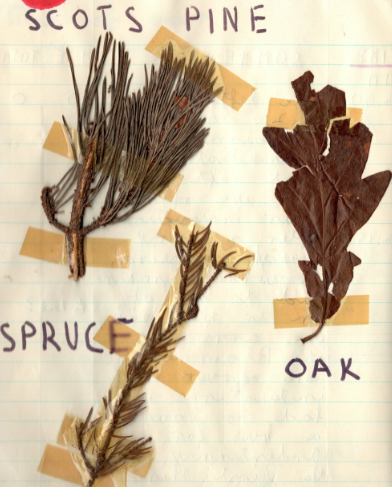 SCOTS PINE
SPRUCE
OAK